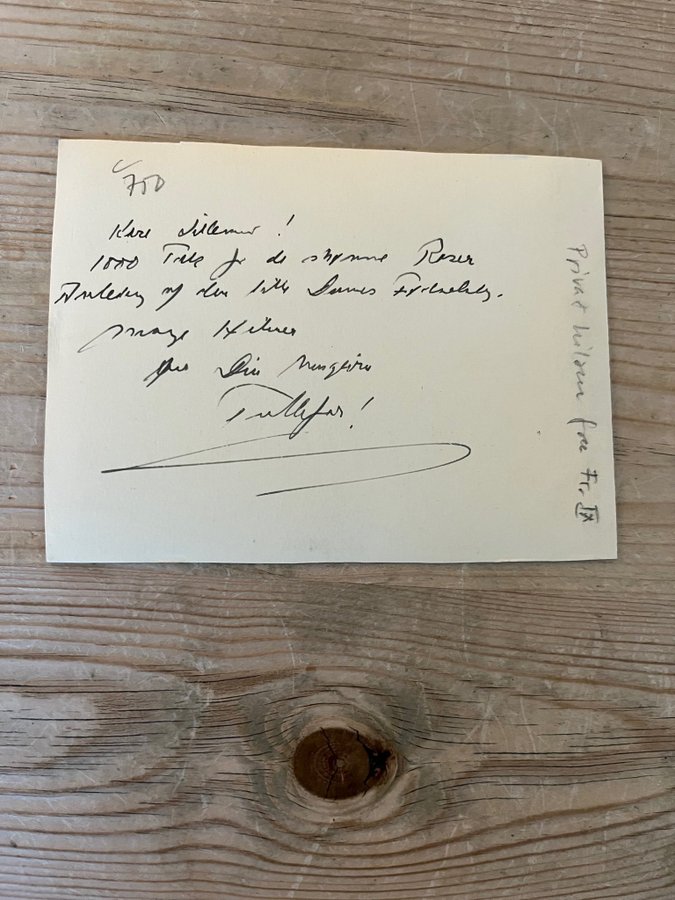 700
Kære Lillemor!
1000 Tak for de skønne Roser
Anledning af den lille Dames Fødselsdag.
mange Hilsner
fra Din hengivne
Privat hilsen fra Fr. IX